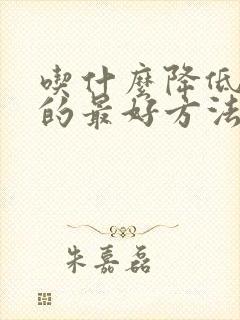 喫什麼降低
的最好方法
朱嘉磊